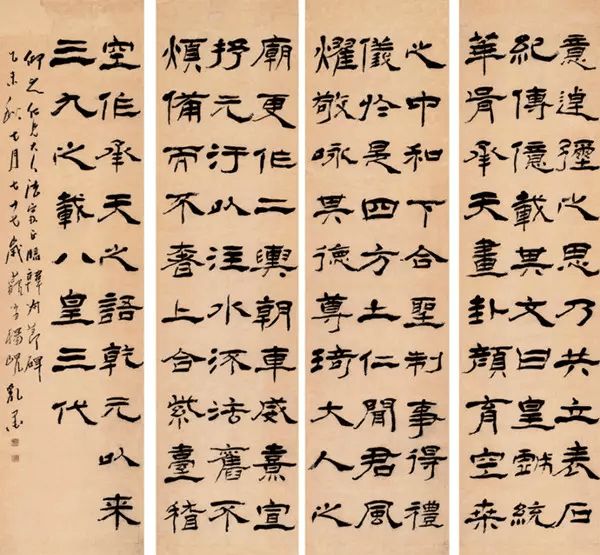 意逴彌之思乃共立表石
紀傳億載其文曰皇戲統
華胥承天畫卦顏育空桒
之中和下合聖制事得禮
儀於是四方土仁聞君風
燿敬咏其德尊琦大人之
廟更作二輿朝車威熹宣
抒元汙以注水流法舊不
煩備而不奢上合紫臺稽
空作承天之語乾元以来
三九之載八皇三代
仰之仁兄大人法家正臨韓勑節碑
乙未秋七月七十七歲藐翁楊峴亂墨